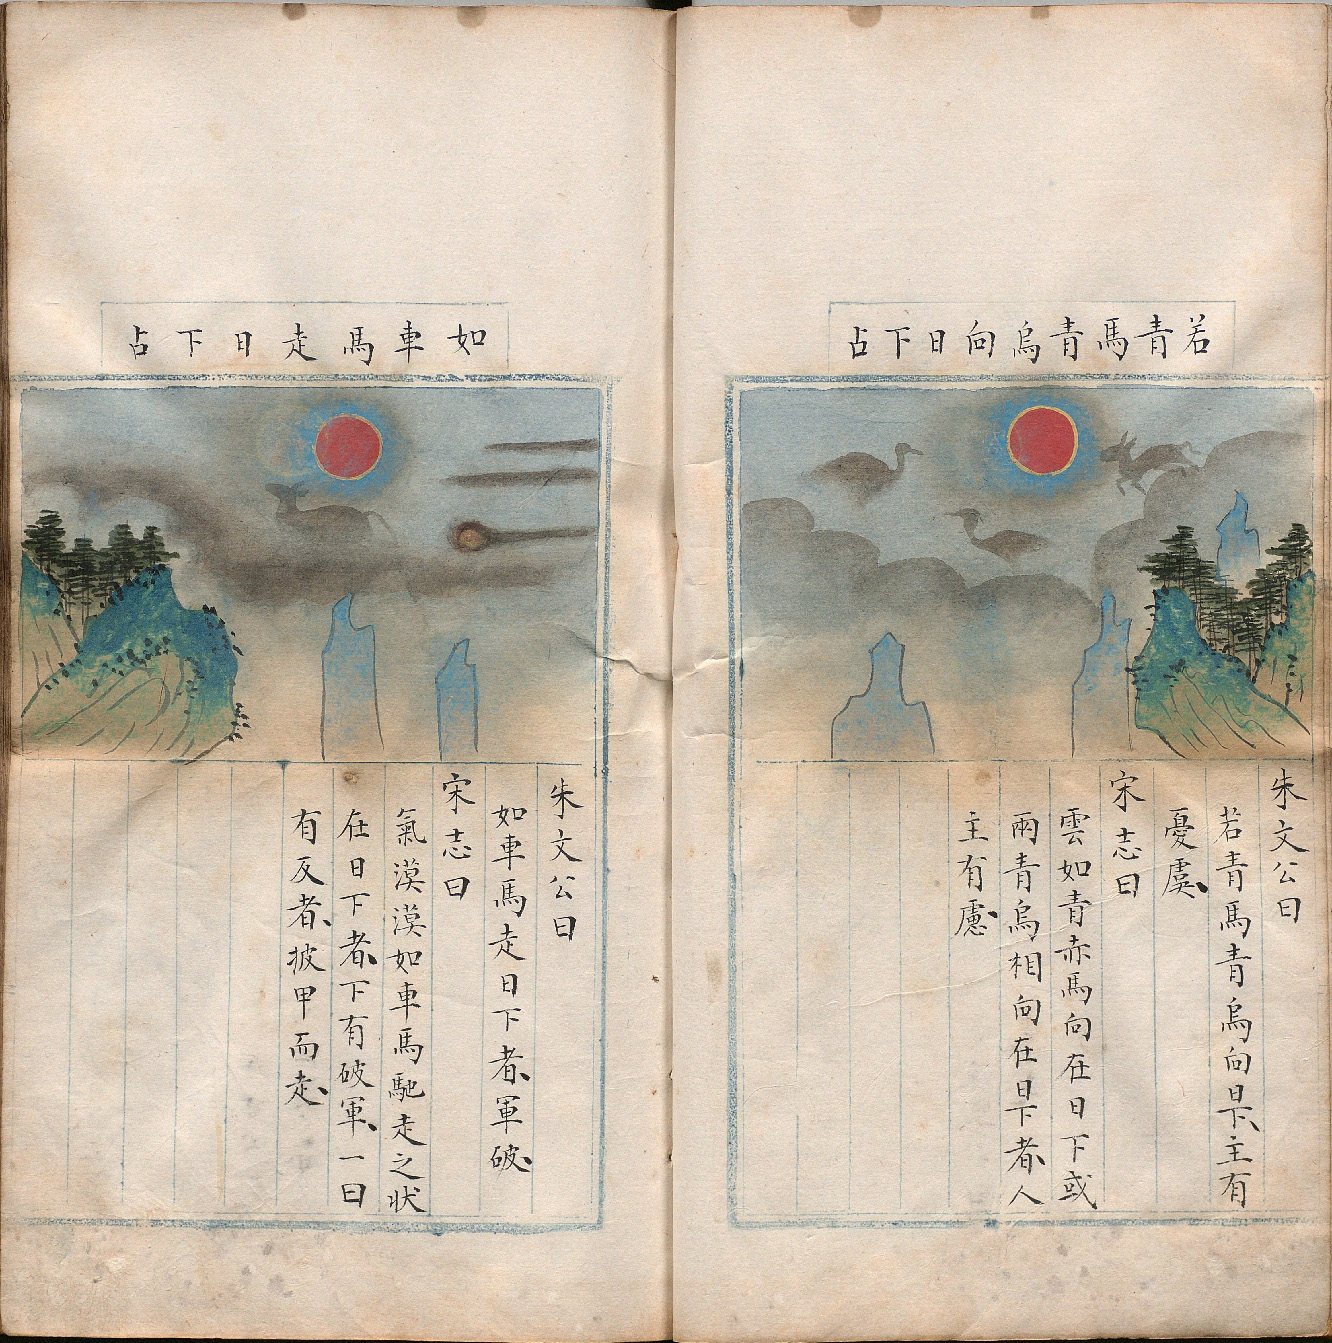 若青馬青烏向日下占
朱文公曰
若青馬青烏向日下主有
憂虞
宋志曰
雲如青赤馬向在日下或
兩青烏相向在日下者人
主有慮
如車馬走日下占
朱文公曰
如車馬走日下者軍破
宋志曰
氣漠漠如車馬馳走之狀
在日下者下有破軍一曰
有反者披甲而走